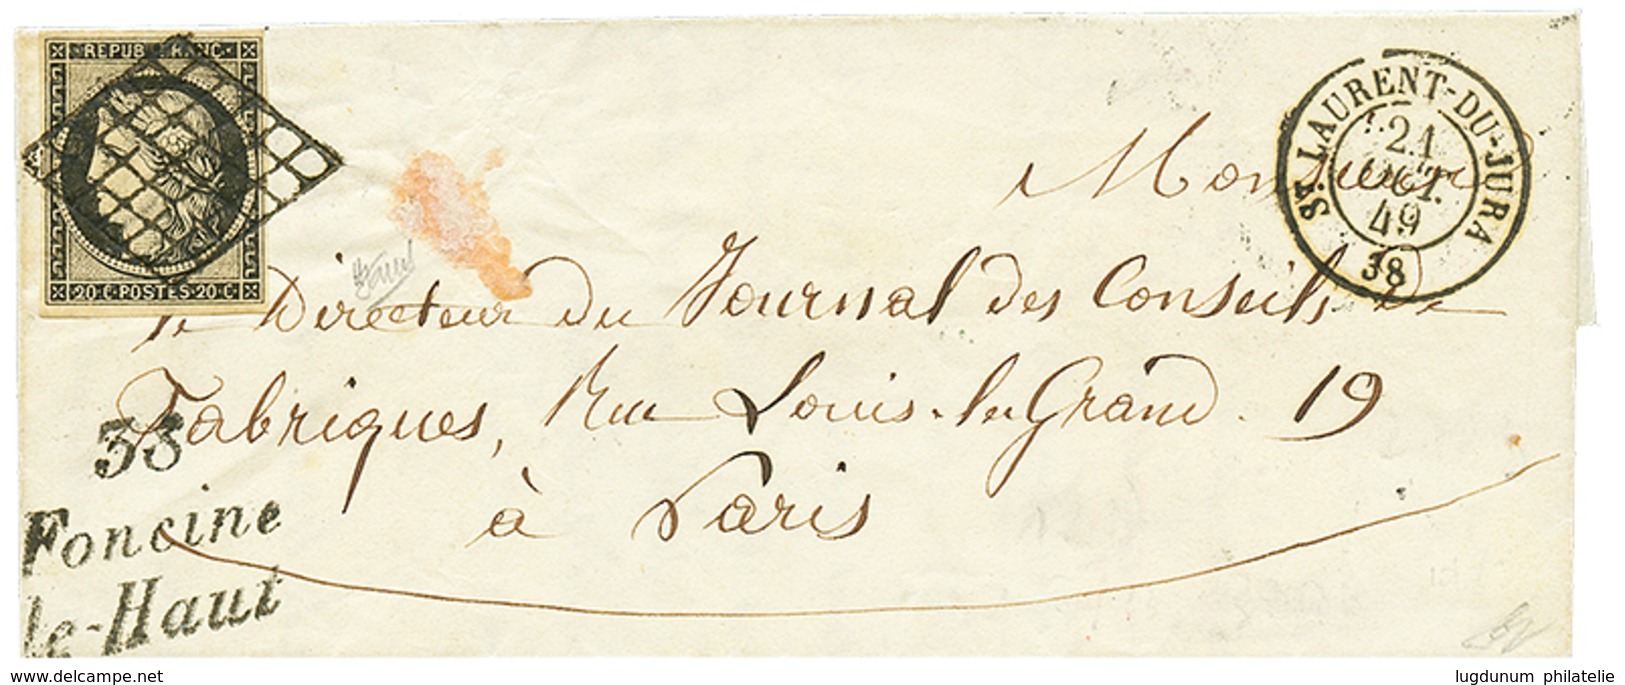 REPUB FRANC
20 C POSTES 20 C
ST. LAURENT-DU-JURA
21
OCT.
49
38
Monsieur
le Directeur du Journal des Conseils de
Fabriques, Rue Louis-le-Grand. 19
à Paris
38
Foncine
le-Haut
www.delcampe.net
lugdunum philatelie